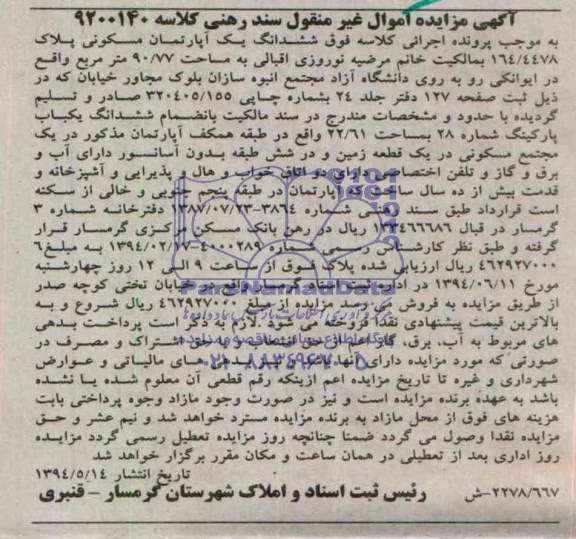 آگهی مزایده اموال غیر منقول سند رهنی کلاسه ۹۲۰۰۱۴۰
به موجب پرونده اجرائی کلاسه فوق ششدانگ یک آپارتمان مسکونی پلاک
۱۶۴/۴۴۷۸ بمالکیت خانم مرضیه نوروزی اقبالی به مساحت ۹۰/۷۷ متر مربع واقع
در ایوانکی رو به روی دانشگاه آزاد مجتمع انبوه سازان بلوک مجاور خیابان که در
ذیل ثبت صفحه ۱۲۷ دفتر جلد ۲۴ بشماره چاپی ۳۲۰۴۰۵/۱۵۵ صادر و تسلیم
گردیده با حدود و مشخصات مندرج در سند مالکیت بانضمام ششدانگ یکباب
پارکینگ شماره ۲۸ بمساحت ۲۲/۶۱ واقع در طبقه همکف آپارتمان مذکور در یک
مجتمع مسکونی در یک قطعه زمین و در شش طبقه بدون آسانسور دارای آب و
برق و گاز و تلفن اختصاصی دارای دو اتاق خواب و هال و پذیرایی و آشپزخانه و
قدمت بیش از ده سال ساخت که آپارتمان در طبقه پنجم جنوبی و خالی از سکنه
است قرارداد طبق سند رهنی شماره ۳۸۶۴-۱۳۸۷/۰۷/۲۳ دفترخانه شماره ۳
گرمسار در قبال ریال در رهن بانک مسکن مرکزی گرمسار قرار
گرفته و طبق نظر کارشناس رسمی شماره ۴۰۰۰۲۸۹-۱۳۹۴/۰۲/۱۷ به مبلغ
۴۶۲۹۲۷۰۰۰ ریال ارزیابی شده پلاک فوق از ساعت ۹ الی ۱۲ روز چهارشنبه
مورخ ۱۳۹۴/۰۶/۱۱ در اداره ثبت اسناد گرمسار واقع در خیابان تختی کوچه صدر
از طریق مزایده به فروش می رسد مزایده از مبلغ ۴۶۲۹۲۷۰۰۰ ریال شروع و به
بالاترین قیمت پیشنهادی نقدا فروخته می شود .لازم به ذکر است پرداخت بدهی
های مربوط به آب، برق، گاز اعم از حق انشعاب و یا حق اشتراک و مصرف در
صورتی که مورد مزایده دارای آنها باشد و نیز بدهی های مالیاتی و عوارض
شهرداری و غیره تا تاریخ مزایده اعم ازینکه رقم قطعی آن معلوم شده یا نشده
باشد به عهده برنده مزایده است و نیز در صورت وجود مازاد وجوه پرداختی بابت
هزینه های فوق از محل مازاد به برنده مزایده مسترد خواهد شد و نیم عشر و حق
مزایده نقدا وصول می گردد ضمنا چنانچه روز مزایده تعطیل رسمی گردد مزایده
روز اداری بعد از تعطیلی در همان ساعت و مکان مقرر برگزار خواهد شد
تاریخ انتشار ۱۳۹۴/۵/۱۴
رئیس ثبت اسناد و املاک شهرستان گرمسار - قنبری
۲۲۷۸/۶۶۷-ش
ParsNamadData
۰۲۱-۸۸۳۴۹۶۷۰-۵